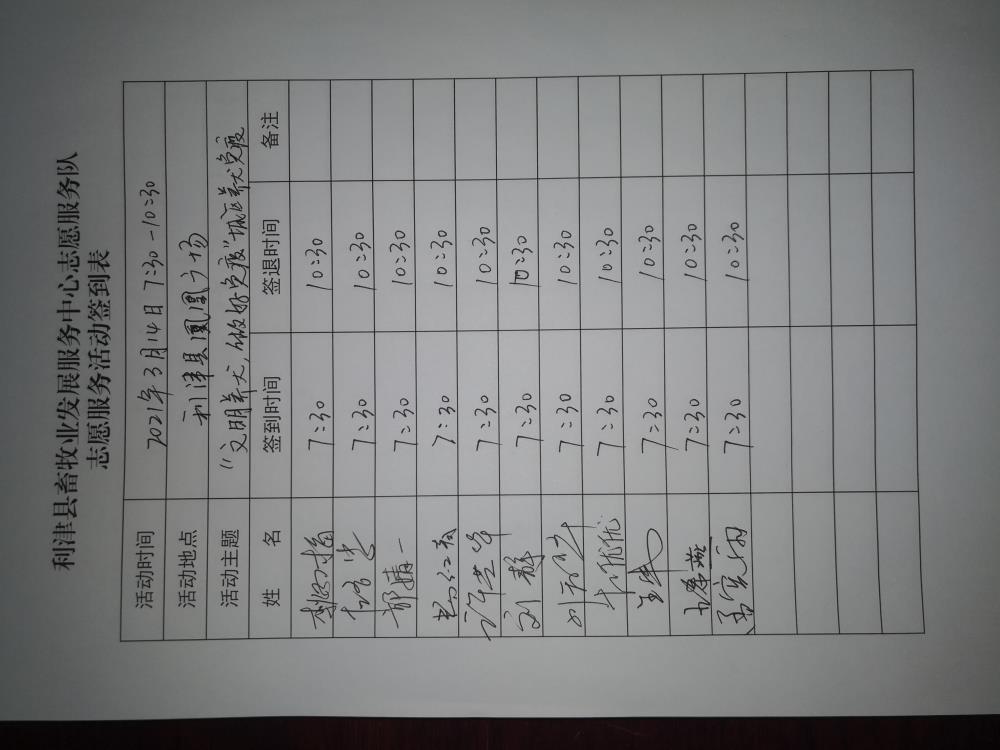 利津县畜牧业发展服务中心志愿服务队
志愿服务活动签到表
活动时间 2021年3月14日 7:30-10:30
活动地点 利津县凤凰广场
活动主题 “文明养犬,做好免疫”城区养犬免疫
姓 名 签到时间 签退时间 备注
7:30 10:30
7:30 10:30
郭婧一 7:30 10:30
7:30 10:30
7:30 10:30
刘静 7:30 10:30
7:30 10:30
7:30 10:30
7:30 10:30
7:30 10:30
7:30 10:30